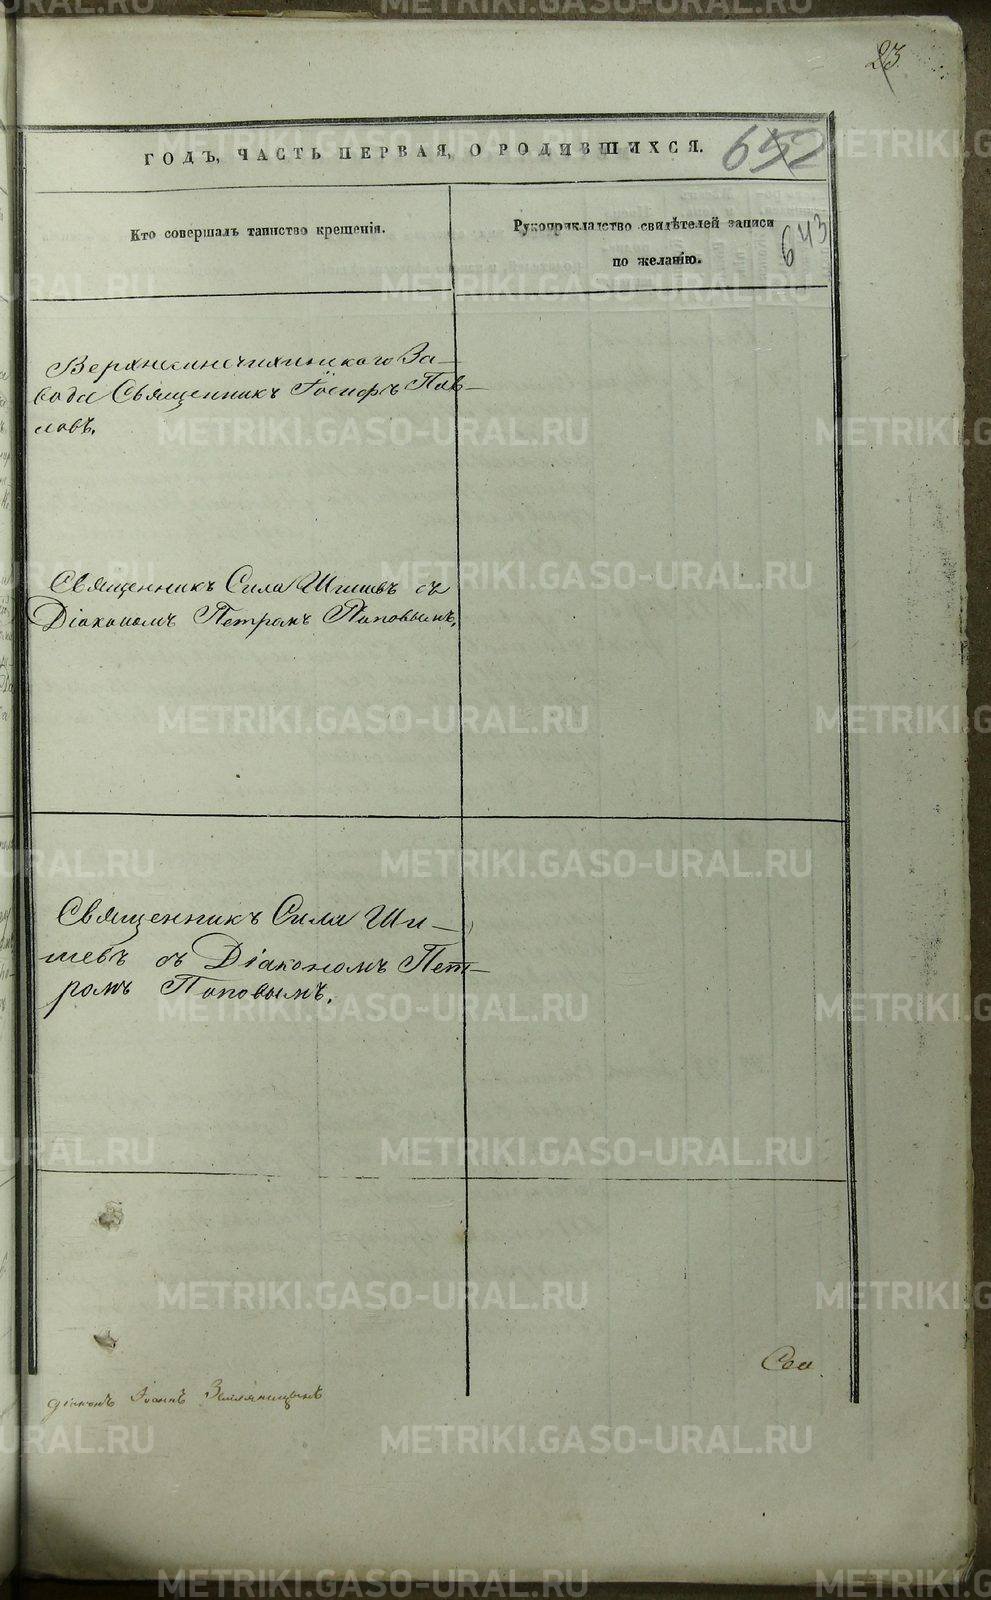 23
ГОДЪ, ЧАСТЬ ПЕРВАЯ, О РОДИВШИХСЯ.
652
Кто совершалъ таинство крещенія.
Рукоприкладство свидѣтелей записи
по желанію.
643
Верхнесинячихинскаго За-
вода Священникъ Іосифъ Пав-
ловъ.
Священникъ Сила Шишевъ съ
Діакономъ Петромъ Поповымъ.
Священникъ Сила Ши-
шевъ съ Діакономъ Пет-
ромъ Поповымъ.
діаконъ Іоаннъ
METRIKI.GASO-URAL.RU